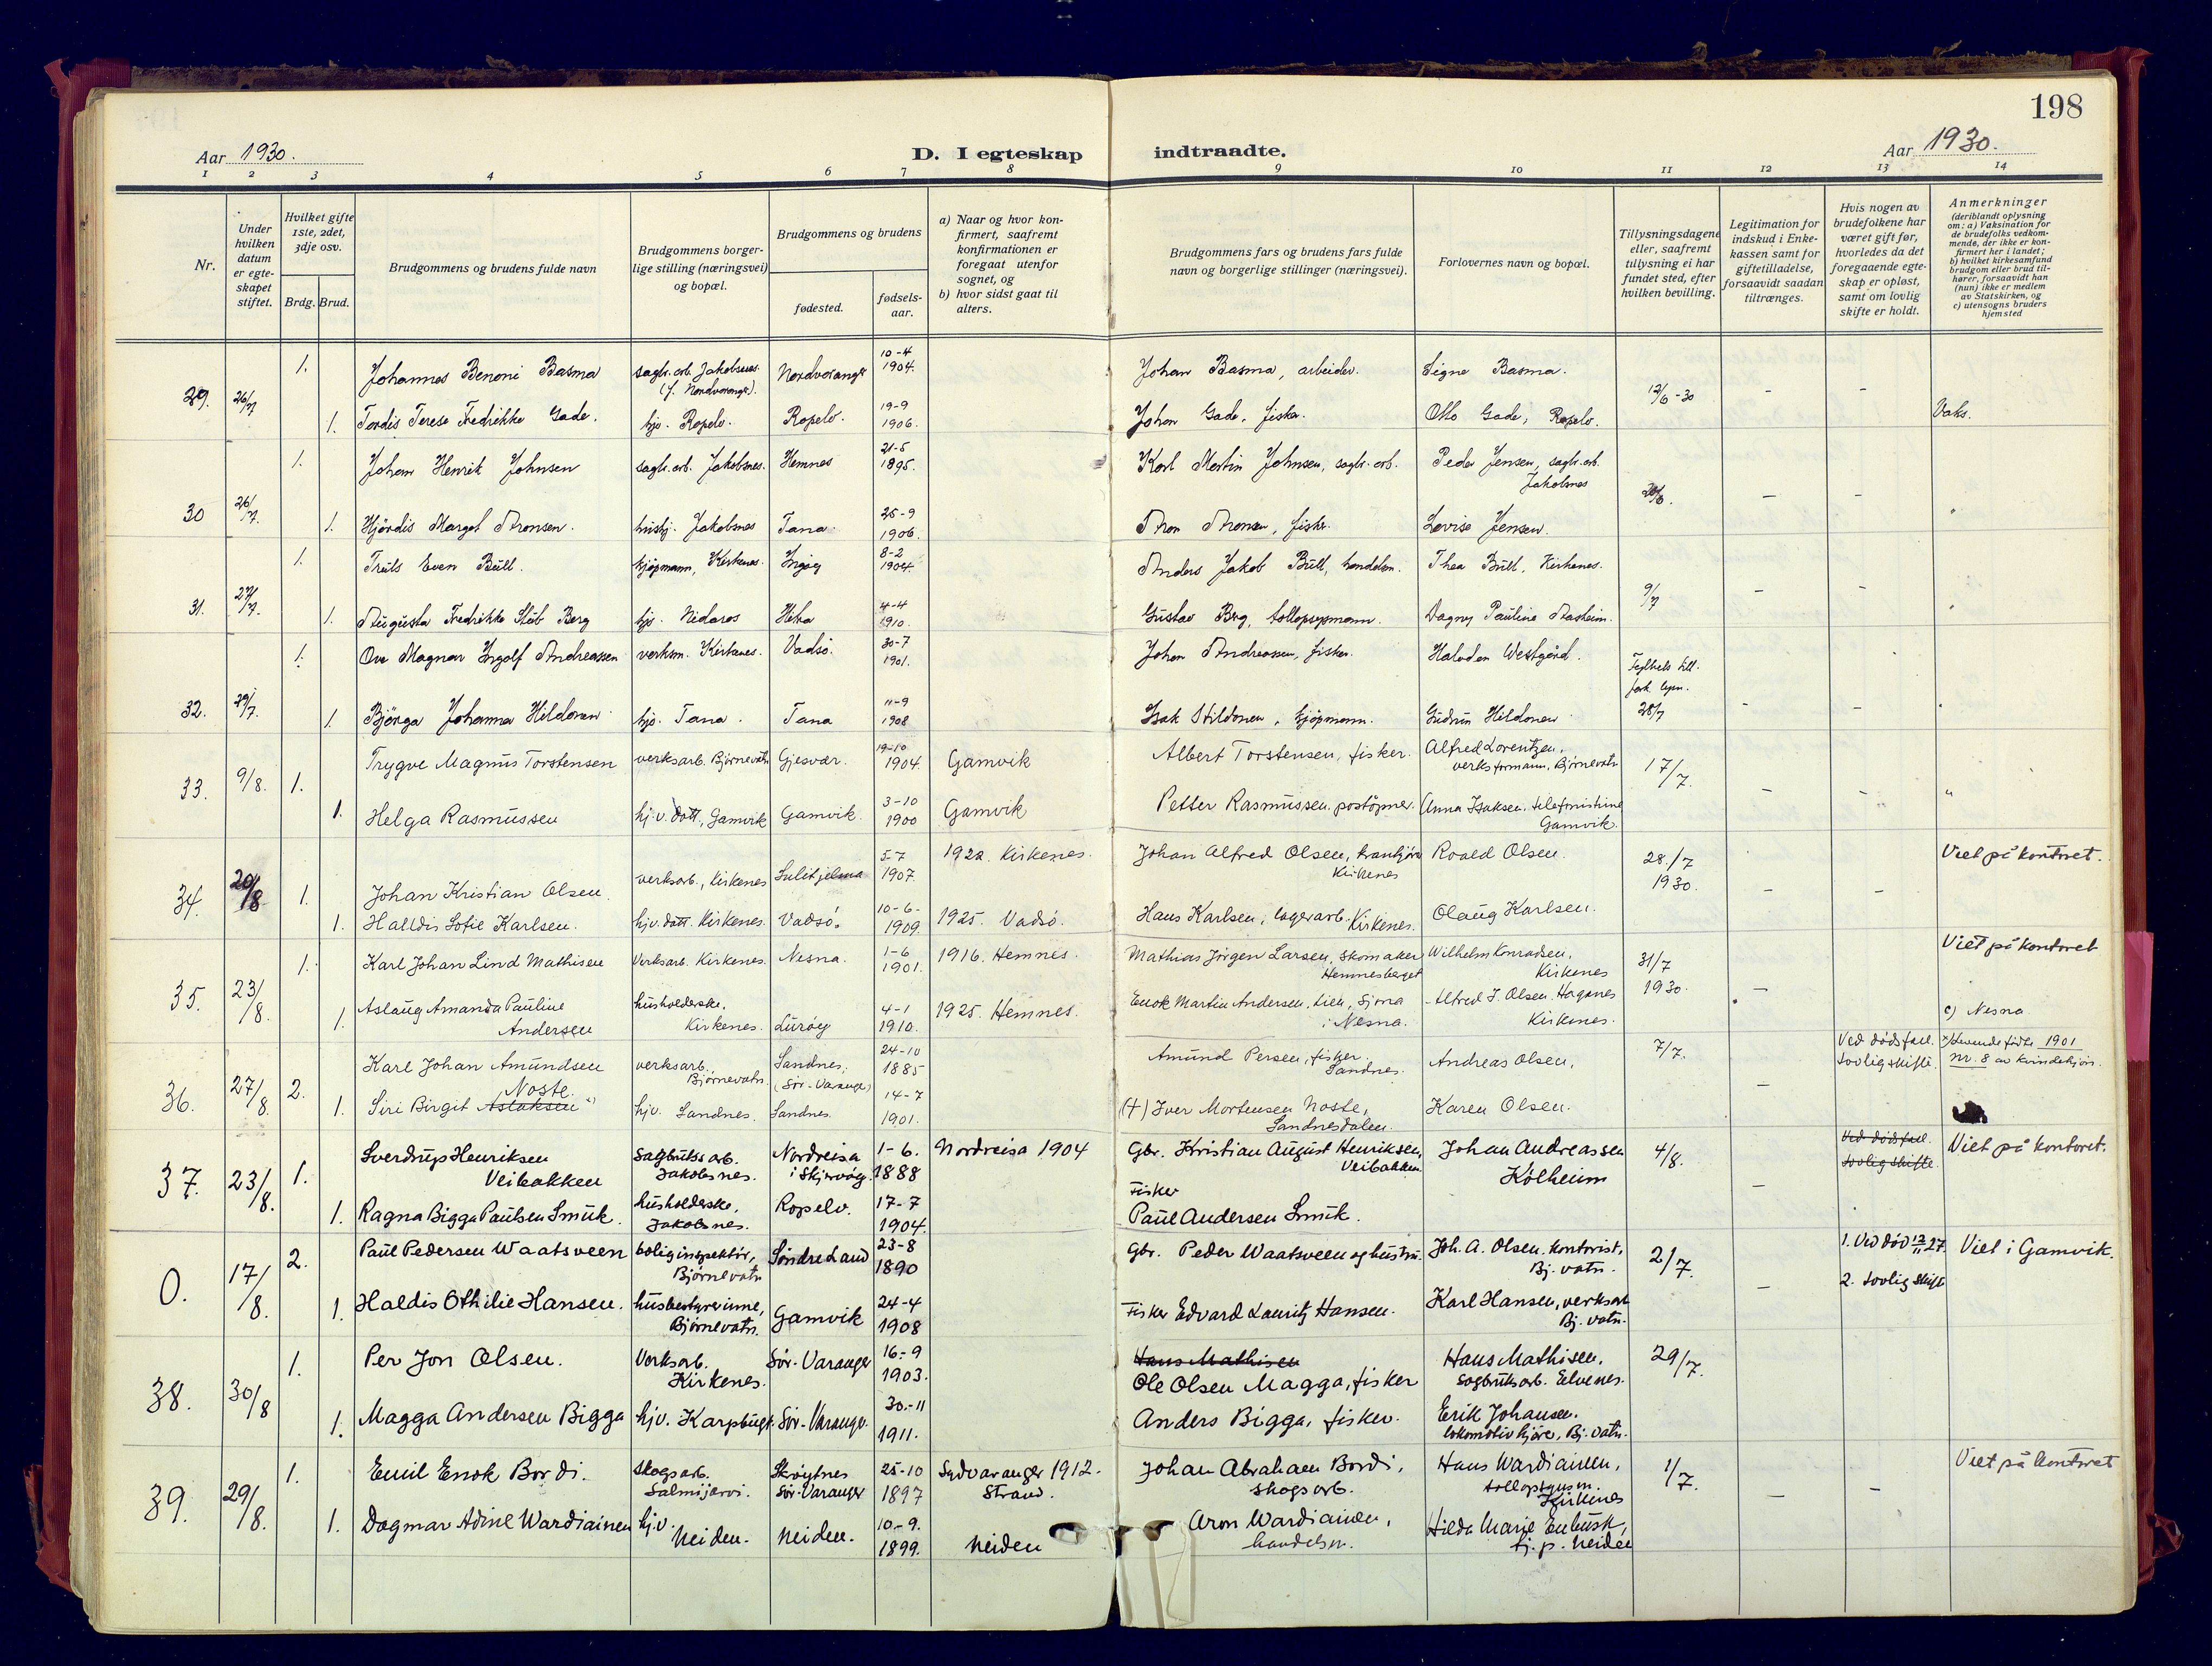 198
Aar 1930.
D. I egteskap indtraadte.
Aar 1930.
1 2 3 4 5 6 7 8 9 10 11 12 13 14
Nr.
Under hvilken datum er egte-skapet stiftet.
Hvilket gifte 1ste, 2det, 3dje osv.
Brdg. Brud.
Brudgommens og brudens fulde navn
Brudgommens borger-lige stilling (næringsvei) og bopæl.
Brudgommens og brudens
fødested.
fødsels-aar.
a) Naar og hvor kon-firmert, saafremt konfirmationen er foregaat utenfor sognet, og
b) hvor sidst gaat til alters.
Brudgommens fars og brudens fars fulde navn og borgerlige stillinger (næringsvei).
Forlovernes navn og bopæl.
Tillysningsdagene eller, saafremt tillysning ei har fundet sted, efter hvilken bevilling.
Legitimation for indskud i Enke-kassen samt for giftetilladelse, forsaavidt saadan tiltrænges.
Hvis nogen av brudefolkene har været gift før, hvorledes da det foregaaende egte-skap er opløst, samt om lovlig skifte er holdt.
Anmerkninger
(deriblandt oplysning om: a) Vaksination for de brudefolks vedkom-mende, der ikke er kon-firmert her i landet; b) hvilket kirkesamfund brudgom eller brud til-hører, forsaavidt han (hun) ikke er medlem av Statskirken, og c) utensogns bruders hjemsted
29. 26/7 1. Johannes Benoni Basma sagbr. arb. Jakobsnes. (f. Nordvarange). Nordvarange 10-4 1904. Johan Basma, arbeider. Signe Basma. 12/6-30 - -
1. Tordis Terese Fredrikke Gade. hjv. Ropelv. Ropelv. 19-9 1906. Johan Gade, fisker. Otto Gade, Ropelv. Vaks.
30 26/7. 1. Johan Henrik Johnsen sagbr. arb. Jakobsnes. Hemnes 21-5 1895. Karl Martin Johnsen, sagbr. arb. Peder Jensen, sagbr. arb. Jakobsnes - -
1. Hjördis Margot Aronsen. hushj. Jakobsnes Tana. 25-9 1906. Aron Aronsen, fisker. Lovise Jensen.
31. 27/7. 1. Truls Even Bull. kjøpmann, Kirkenes. Ingøy 8-2 1904 Anders Jakob Bull, handelsm. Thea Bull, Kirkenes. 9/7 - -
1. Augusta Fredrikke Stub Berg hjv. Nidaros Hitra 4-4 1910. Gustav Berg, tollopsynsmann. Dagny Pauline Aasheim.
32. 29/7. 1. Ove Magnar Ingolf Andreassen verksm. Kirkenes. Vadsö. 30-7 1901. Johan Andreassen, fisker. Halvdan Westgård. 28/7 - -
1. Björga Johanna Hildonen hjv. Tana. Tana 11-9 1908 Isak Hildonen, kjöpmann. Gudrun Hildonen
33. 9/8. 1. Trygve Magnus Torstensen verksarb. Bjørnevatn Gjesvær. 19-10 1904. Gamvik Albert Torstensen, fisker. Alfred Lorentzen, verksformann, Bjørnevatn 17/7. - - "
1. Helga Rasmussen hj. v. datt., Gamvik Gamvik. 3-10 1900 Gamvik Petter Rasmussen. postöpner. Anna Isaksen, telefonistinne Gamvik.
34. 20/8 1. Johan Kristian Olsen. verksarb., Kirkenes Sulitjelma 5-7 1907. 1922. Kirkenes. Johan Alfred Olsen, Kirkenes Roald Olsen. 28./7 1930. - - Viet på kontoret.
1. Halldis Sofie Karlsen. hjv. datt. Kirkenes. Vadsö. 10-6- 1909. 1925. Vadsö. Hans Karlsen, lagerarb. Kirkenes. Olaug Karlsen.
35. 23/8. 1. Karl Johan Lind Mathisen Verksarb. Kirkenes. Nesna. 1-6 1901. 1916. Hemnes. Mathias Jörgen Larsen, skomaker Hemnesberget Wilhelm Konradsen, Kirkenes 31/7 1930. - Viet på kontoret
1. Aslaug Amanda Pauline Andersen husholderske, Kirkenes. Lurøy 4-1 1910. 1925. Hemnes. Enok Martin Andersen. Lien, Sjona i Nesna. Alfred J. Olsen. Haganes Kirkenes. c) Nesna
36. 27/8. 2. Karl Johan Amundsen verksarb. Bjørnevatn. Sandnes, (Sør-Varange) 24-10 1885 Amund Persen, fisker. Sandnes. Andreas Olsen, 7/7. - Ved dødsfall. Lovlig skifte. x) Levende fødte 1901 nr. 8 av kvindekjön.
1. Siri Birgit Aslaksen Noste. hjv. Sandnes. Sandnes. 14-7 1901. (+) Iver Mortensen Noste, Sandnesdalen. Karen Olsen.
37. 23/8. 1. Sverdrup Henriksen Veibakken sagbruksarb. Jakobsnes. Nordreisa i Skjervøy. 1-6. 1888 Nordreisa 1904 Gbr. Kristian August Henriksen, Veibakken Johan Andreassen Kolheim 4/8. - Ved dødsfall. Lovlig skifte. Viet på kontoret.
1. Ragna Bigga Paulsen Smuk. husholderske, Jakobsnes. Ropelv. 17-7 1904. Fisker Paul Andersen Smuk.
0. 17/8. 2. Paul Pedersen Waatsveen boliginspektör, Bjørnevatn Søndre Land 23-8 1890 Gbr. Peder Waatsveen og hustru. Joh. A. Olsen. kontorist, Bj. vatn. 2/7. - 1. Ved død 12/11 27 2. Lovlig skifte Viet i Gamvik.
1. Haldis Othilie Hansen. husbestyrerinne, Bjørnevatn. Gamvik 24-4 1908 Fisker Edvard Lauritz Hansen. Karl Hansen, verksarb Bj. vatn.
38. 30/8 1. Per Jon Olsen. Verksarb. Kirkenes. Sør-Varanger 16-9 1903. Hans Mathisen Ole Olsen Magga, fisker Hans Mathisen, Sagbruksarb. Elvenes. 29/7.
1. Magga Andersen Bigga hjv. Karpbugt. Sør-Varanger. 30-11 1911. Anders Bigga, fisker. Erik Johansen, lokomotivkjører, Bj. vatn.
39. 29/8. 1. Emil Enok Bordi. skogsarb. Salmijärvi. Skrøytnes Sør-Varanger 25-10 1897 Sydvaranger 1912. Strand. Johan Abraham Bordi, skogsarb. Hans Wardiainen, tollopsynsm. Kirkenes 1/7. - - Viet på kontoret
1. Dagmar Adine Wardiainen hj.v. Neiden. Neiden. 10-9. 1899. Neiden Aron Wardiainen, handelsm. Hilda Marie Enbusk, Neiden